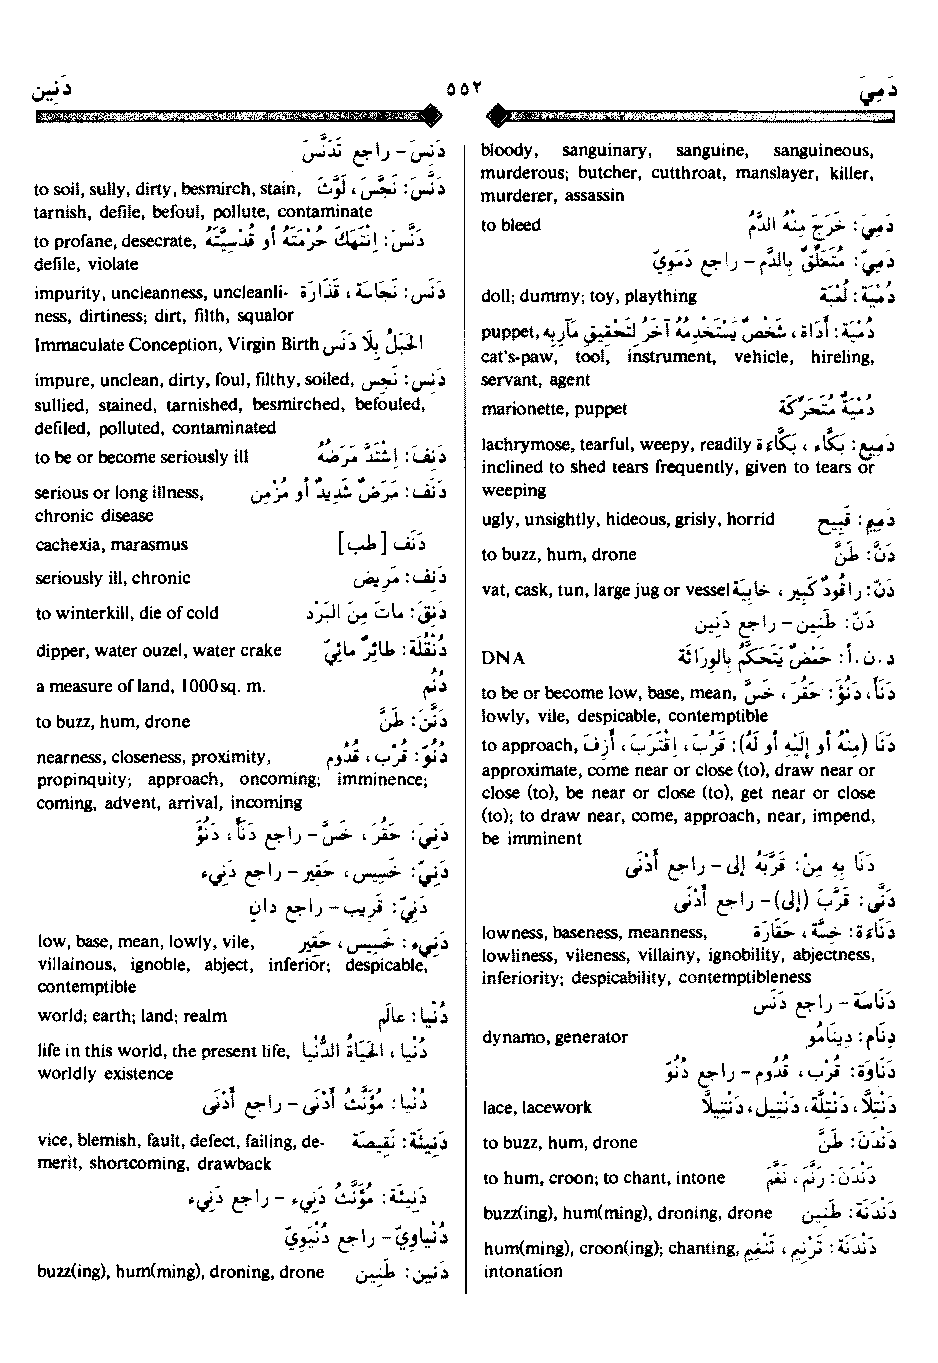 دَمِيَ ٥٥٢ دَنِين
bloody, sanguinary, sanguine, sanguineous,
murderous; butcher, cutthroat, manslayer, killer,
murderer, assassin
دَمِيَ: خَرَجَ مِنْهُ الدَّمُ to bleed
دَمِيّ: مُتَعَلِّقٌ بِالدَّمِ – راجع دَمَوِيّ
دُمْيَة: لُعْبَة doll; dummy; toy, plaything
دُمْيَة: أَدَاة، شَخْصٌ يَسْتَخْدِمُهُ آخَرُ لِتَحْقِيقِ مَآرِبِهِ puppet,
cat's-paw, tool, instrument, vehicle, hireling,
servant, agent
دُمْيَةٌ مُتَحَرِّكَة marionette, puppet
دَمِيع: بَكَّاء، بَكَّاءَة lachrymose, tearful, weepy, readily
inclined to shed tears frequently, given to tears or
weeping
دَمِيم: قَبِيح ugly, unsightly, hideous, grisly, horrid
دَنَّ: طَنَّ to buzz, hum, drone
دَنّ: رَاقُودٌ كَبِير، خَابِيَة vat, cask, tun, large jug or vessel
دَنّ: طَنِين – راجع دَنِين
د.ن.أ: حَمْضٌ يَتَحَكَّمُ بِالوِرَاثَة DNA
دَنَأَ، دَنُؤَ: حَقُرَ، خَسَّ to be or become low, base, mean,
lowly, vile, despicable, contemptible
دَنَا (مِنْهُ أو إِلَيْهِ أو لَهُ): قَرُبَ، اِقْتَرَبَ، أَزِفَ to approach,
approximate, come near or close (to), draw near or
close (to), be near or close (to), get near or close
(to); to draw near, come, approach, near, impend,
be imminent
دَنَا بِهِ مِنْ: قَرَّبَهُ إلى – راجع أَدْنَى
دَنَّى: قَرَّبَ (إلى) – راجع أَدْنَى
دَنَاءَة: خِسَّة، حَقَارَة lowness, baseness, meanness,
lowliness, vileness, villainy, ignobility, abjectness,
inferiority; despicability, contemptibleness
دَنَاسَة – راجع دَنَس
دِنَام: دِينَامُو dynamo, generator
دَنَاوَة: قُرْب، قُدُوم – راجع دُنُوّ
دَنْتِلَّا، دَنْتِلَّة، دَنْتِيل، دَنْتِيلَّا lace, lacework
دَنْدَنَ: طَنَّ to buzz, hum, drone
دَنْدَنَ: رَنَّمَ، نَغَّمَ to hum, croon; to chant, intone
دَنْدَنَة: طَنِين buzz(ing), hum(ming), droning, drone
دَنْدَنَة: تَرْنِيم، تَنْغِيم hum(ming), croon(ing); chanting,
intonation
دَنِسَ – راجع تَدَنَّسَ
دَنَّسَ: نَجَّسَ، لَوَّثَ to soil, sully, dirty, besmirch, stain,
tarnish, defile, befoul, pollute, contaminate
دَنَّسَ: اِنْتَهَكَ حُرْمَتَهُ أو قُدْسِيَّتَهُ to profane, desecrate,
defile, violate
دَنَس: نَجَاسَة، قَذَارَة impurity, uncleanness, uncleanli-
ness, dirtiness; dirt, filth, squalor
الحَبَلُ بِلَا دَنَس Immaculate Conception, Virgin Birth
دَنِس: نَجِس impure, unclean, dirty, foul, filthy, soiled,
sullied, stained, tarnished, besmirched, befouled,
defiled, polluted, contaminated
دَنِفَ: اِشْتَدَّ مَرَضُهُ to be or become seriously ill
دَنَف: مَرَضٌ شَدِيدٌ أو مُزْمِن serious or long illness,
chronic disease
دَنَف [طب] cachexia, marasmus
دَنِف: مَرِيض seriously ill, chronic
دَنِقَ: مَاتَ مِنَ البَرْد to winterkill, die of cold
دُنْقُلَة: طَائِرٌ مَائِيّ dipper, water ouzel, water crake
دُنُم a measure of land, 1000 sq. m.
دَنَّنَ: طَنَّ to buzz, hum, drone
دُنُوّ: قُرْب، قُدُوم nearness, closeness, proximity,
propinquity; approach, oncoming; imminence;
coming, advent, arrival, incoming
دَنِيَ: حَقُرَ، خَسَّ – راجع دَنَأَ، دَنُؤَ
دَنِيّ: خَسِيس، حَقِير – راجع دَنِيء
دَنِيّ: قَرِيب – راجع دانٍ
دَنِيء: خَسِيس، حَقِير low, base, mean, lowly, vile,
villainous, ignoble, abject, inferior; despicable,
contemptible
دُنْيَا: عَالَم world; earth; land; realm
دُنْيَا، الحَيَاةُ الدُّنْيَا life in this world, the present life,
worldly existence
دُنْيَا: مُؤَنَّثُ أَدْنَى – راجع أَدْنَى
دَنِيئَة: نَقِيصَة vice, blemish, fault, defect, failing, de-
merit, shortcoming, drawback
دَنِيئَة: مُؤَنَّثُ دَنِيء – راجع دَنِيء
دُنْيَاوِيّ – راجع دُنْيَوِيّ
دَنِين: طَنِين buzz(ing), hum(ming), droning, drone